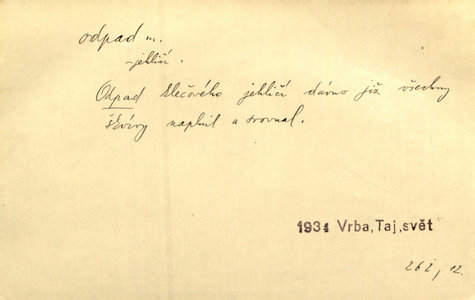 odpad m.
-jehličí.
Odpad klečového jehličí dávno již všechny
škvíry naplnil a srovnal.
1934 Vrba, Taj. svět
262, 12.